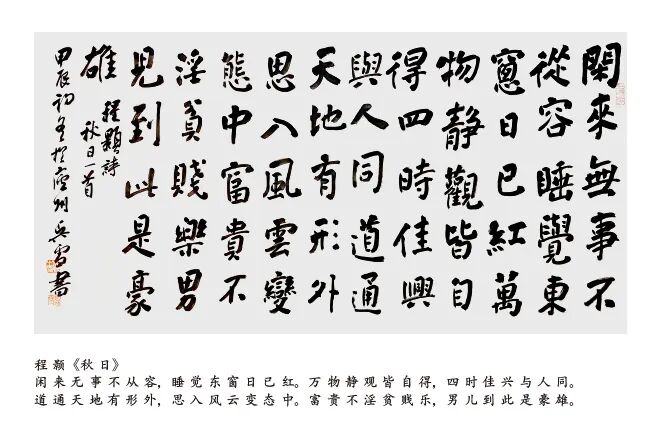 閑來無事不
從容睡覺東
窻日已紅萬
物靜觀皆自
得四時佳興
與人同道通
天地有形外
思入風雲變
態中富貴不
淫貧賤樂男
兒到此是豪
雄
程顥詩
秋日一首
甲辰初冬於廬州吳雪書
程颢《秋日》
闲来无事不从容，睡觉东窗日已红。万物静观皆自得，四时佳兴与人同。
道通天地有形外，思入风云变态中。富贵不淫贫贱乐，男儿到此是豪雄。